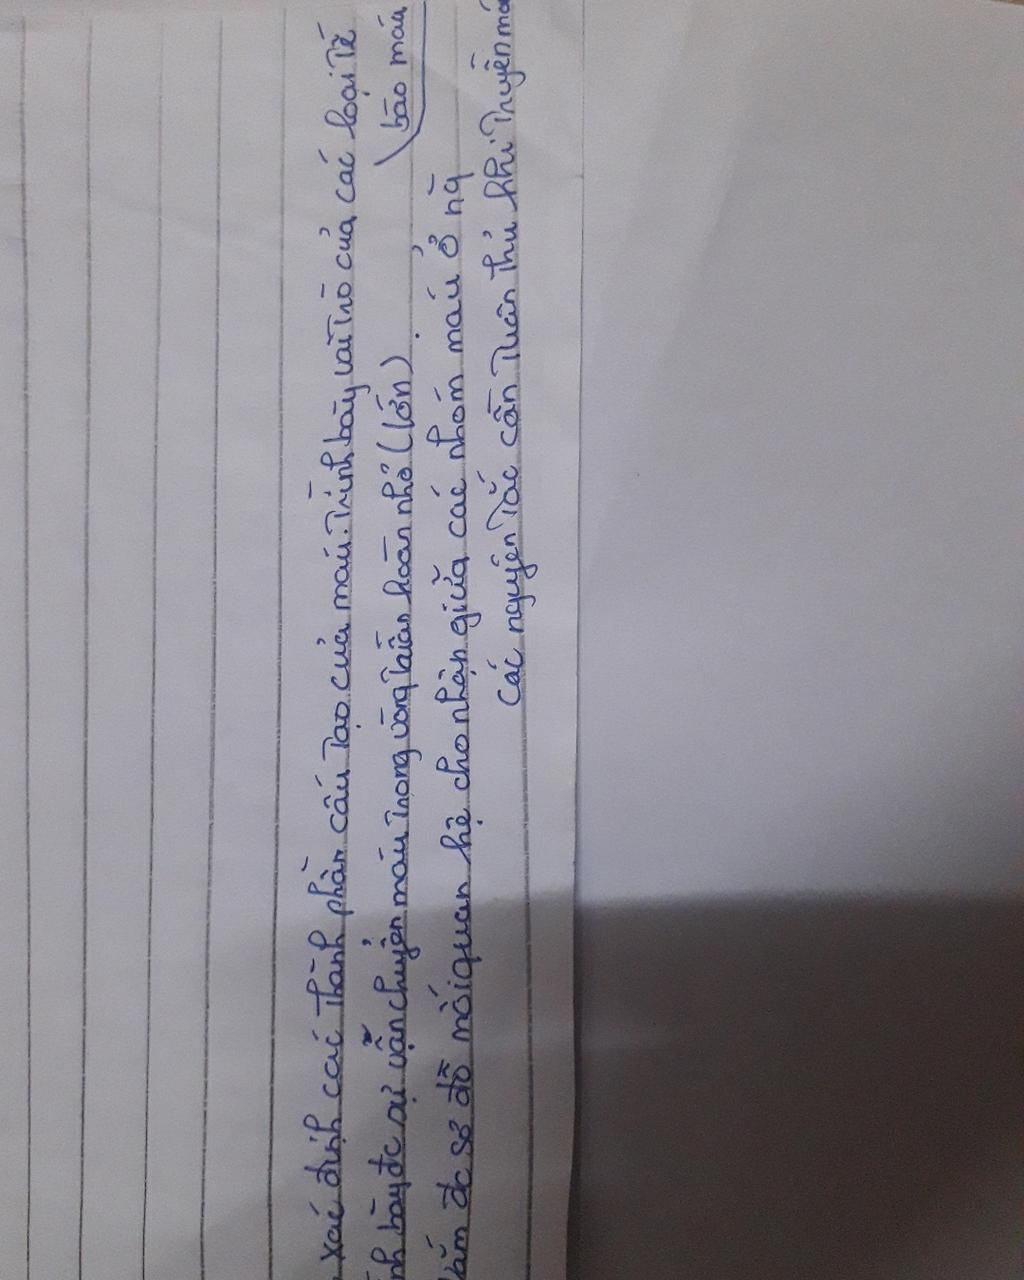 xác định các thành phần cấu tạo của máu. Trình bày vai trò của các loại tế
bào máu
bày đc sự vận chuyển máu trong vòng tuần hoàn nhỏ (lớn).
đc sơ đồ mối quan hệ cho nhận giữa các nhóm máu ở ng
các nguyên tắc cần tuân thủ khi truyền má